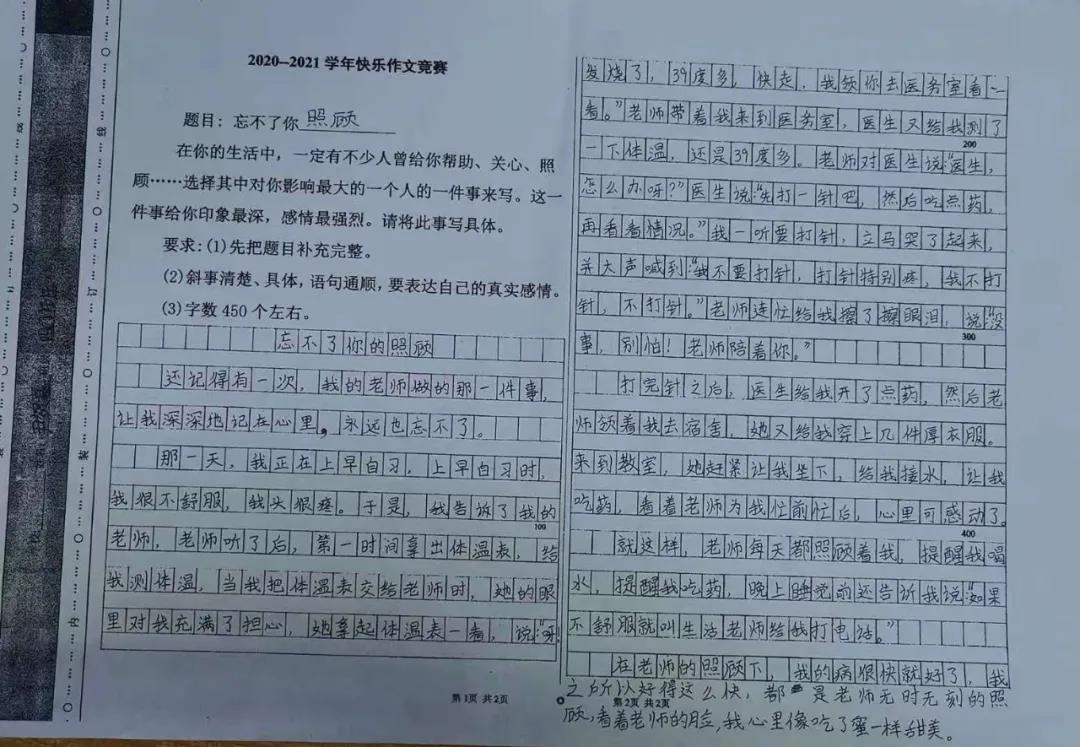 2020--2021学年快乐作文竞赛
题目：忘不了你照顾
在你的生活中，一定有不少人曾给你帮助、关心、照
顾……选择其中对你影响最大的一个人的一件事来写。这一
件事给你印象最深，感情最强烈。请将此事写具体。
要求：(1)先把题目补充完整。
(2)斜事清楚、具体，语句通顺，要表达自己的真实感情。
(3)字数450个左右。
忘不了你的照顾
还记得有一次，我的老师做的那一件事，
让我深深地记在心里，永远也忘不了。
那一天，我正在上早自习，上早自习时，
我狠不舒服，我头狠疼。于是，我告诉了我的
100
老师，老师听了后，第一时间拿出体温表，给
我测体温，当我把体温表交给老师时，她的眼
里对我充满了担心，她拿起体温表一看，说：“呀
第1页 共2页
发烧了，39度多，快走，我领你去医务室看一
看。”老师带着我来到医务室，医生又给我测了
200
一下体温，还是39度多。老师对医生说：“医生，
怎么办呀？”医生说：“先打一针吧，然后吃点药，
再看看情况。”我一听要打针，立马哭了起来，
并大声喊到：“我不要打针，打针特别疼，我不打
针，不打针。”老师连忙给我擦了擦眼泪，说：“没
300
事，别怕！老师陪着你。”
打完针之后，医生给我开了点药，然后老
师领着我去宿舍，她又给我穿上几件厚衣服。
来到教室，她赶紧让我坐下，给我接水，让我
吃药，看着老师为我忙前忙后，心里可感动了。
400
就这样，老师每天都照顾着我，提醒我喝
水，提醒我吃药，晚上睡觉前还告诉我说：“如果
不舒服就叫生活老师给我打电话。”
在老师的照顾下，我的病很快就好了，我
之所以好得这么快，都是老师无时无刻的照
第2页 共2页
顾，看着老师的脸，我心里像吃了蜜一样甜美。
线
订
装
内